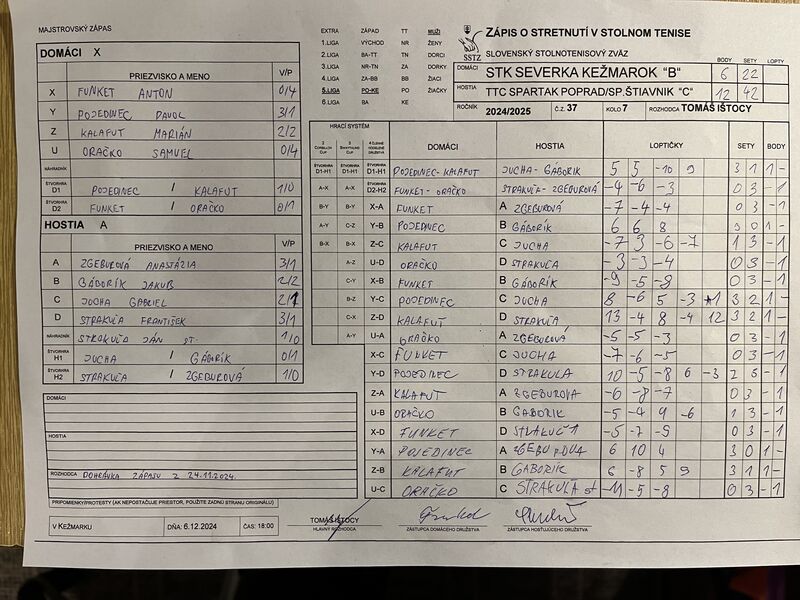 MAJSTROVSKÝ ZÁPAS
DOMÁCI X
PRIEZVISKO A MENO V/P
X FUNKET ANTON 0/4
Y POJEDINEC PAVOL 3/1
Z KALAFUT MARIÁN 2/2
U ORAČKO SAMUEL 0/4
NÁHRADNÍK
ŠTVORHRA D1 POJEDINEC / KALAFUT 1/0
ŠTVORHRA D2 FUNKET / ORAČKO 0/1
HOSTIA A
PRIEZVISKO A MENO V/P
A ZGEBUROVÁ ANASTÁZIA 3/1
B GÁBORÍK JAKUB 2/2
C JUCHA GABRIEL 2/1
D STRAKUĽA FRANTIŠEK 3/1
NÁHRADNÍK JÁN ST. 1/0
ŠTVORHRA H1 JUCHA / GÁBORÍK 0/1
ŠTVORHRA H2 STRAKUĽA / ZGEBUROVÁ 1/0
DOMÁCI
HOSTIA
ROZHODCA DOHRÁVKA ZÁPASU Z 24.11.2024.
PRIPOMIENKY/PROTESTY (AK NEPOSTAČUJE PRIESTOR, POUŽITE ZADNÚ STRANU ORIGINÁLU)
V KEŽMARKU DŇA: 6.12.2024 ČAS: 18:00
TOMÁŠ IŠTOCY
HLAVNÝ ROZHODCA
ZÁSTUPCA DOMÁCEHO DRUŽSTVA
ZÁSTUPCA HOSŤUJÚCEHO DRUŽSTVA
EXTRA ZÁPAD TT MUŽI
1.LIGA VÝCHOD NR ŽENY
2.LIGA BA-TT TN DORCI
3.LIGA NR-TN ZA DORKY
4.LIGA ZA-BB BB ŽIACI
5.LIGA PO-KE PO ŽIAČKY
6.LIGA BA KE
SSTZ
ZÁPIS O STRETNUTÍ V STOLNOM TENISE
SLOVENSKÝ STOLNOTENISOVÝ ZVÄZ
BODY SETY LOPTY
DOMÁCI STK SEVERKA KEŽMAROK "B" 6 22
HOSTIA TTC SPARTAK POPRAD/SP.ŠTIAVNIK "C" 12 42
ROČNÍK 2024/2025 č.z. 37 KOLO 7 ROZHODCA TOMÁŠ IŠTOCY
HRACÍ SYSTÉM
DOMÁCI HOSTIA LOPTIČKY SETY BODY
ŠTVORHRA D1-H1 ŠTVORHRA D1-H1 ŠTVORHRA D1-H1 POJEDINEC-KALAFUT JUCHA-GÁBORÍK 5 5 -10 9 3 1 1 -
A-X A-X ŠTVORHRA D2-H2 FUNKET-ORAČKO STRAKUĽA-ZGEBUROVÁ -4 -6 -3 0 3 - 1
B-Y B-Y X-A FUNKET A ZGEBUROVÁ -7 -4 -4 0 3 - 1
C-Z C-Z Y-B POJEDINEC B GÁBORÍK 6 6 8 3 0 1 -
B-X B-X Z-C KALAFUT C JUCHA -7 3 -6 -7 1 3 - 1
A-Z U-D ORAČKO D STRAKUĽA -3 -3 -4 0 3 - 1
C-Y X-B FUNKET B GÁBORÍK -9 -5 -8 0 3 - 1
B-Z Y-C POJEDINEC C JUCHA 8 -6 5 -3 3 2 1 -
C-X Z-D KALAFUT D STRAKUĽA 13 -4 8 -4 12 3 2 1 -
A-Y U-A ORAČKO A ZGEBUROVÁ -5 -5 -3 0 3 - 1
X-C FUNKET C JUCHA -7 -6 -5 0 3 - 1
Y-D POJEDINEC D STRAKUĽA 10 -5 -8 6 -3 2 - 1
Z-A KALAFUT A ZGEBUROVA -6 -8 -7 0 3 - 1
U-B ORAČKO B GÁBORIK -5 -4 9 -6 1 3 - 1
X-D FUNKET D -5 -7 -9 0 3 - 1
Y-A POJEDINEC A 6 10 4 3 0 1 -
Z-B KALAFUT B GÁBORIK 6 -8 5 9 3 1 1 -
U-C ORAČKO C STRAKUĽA st -11 -5 -8 0 3 - 1